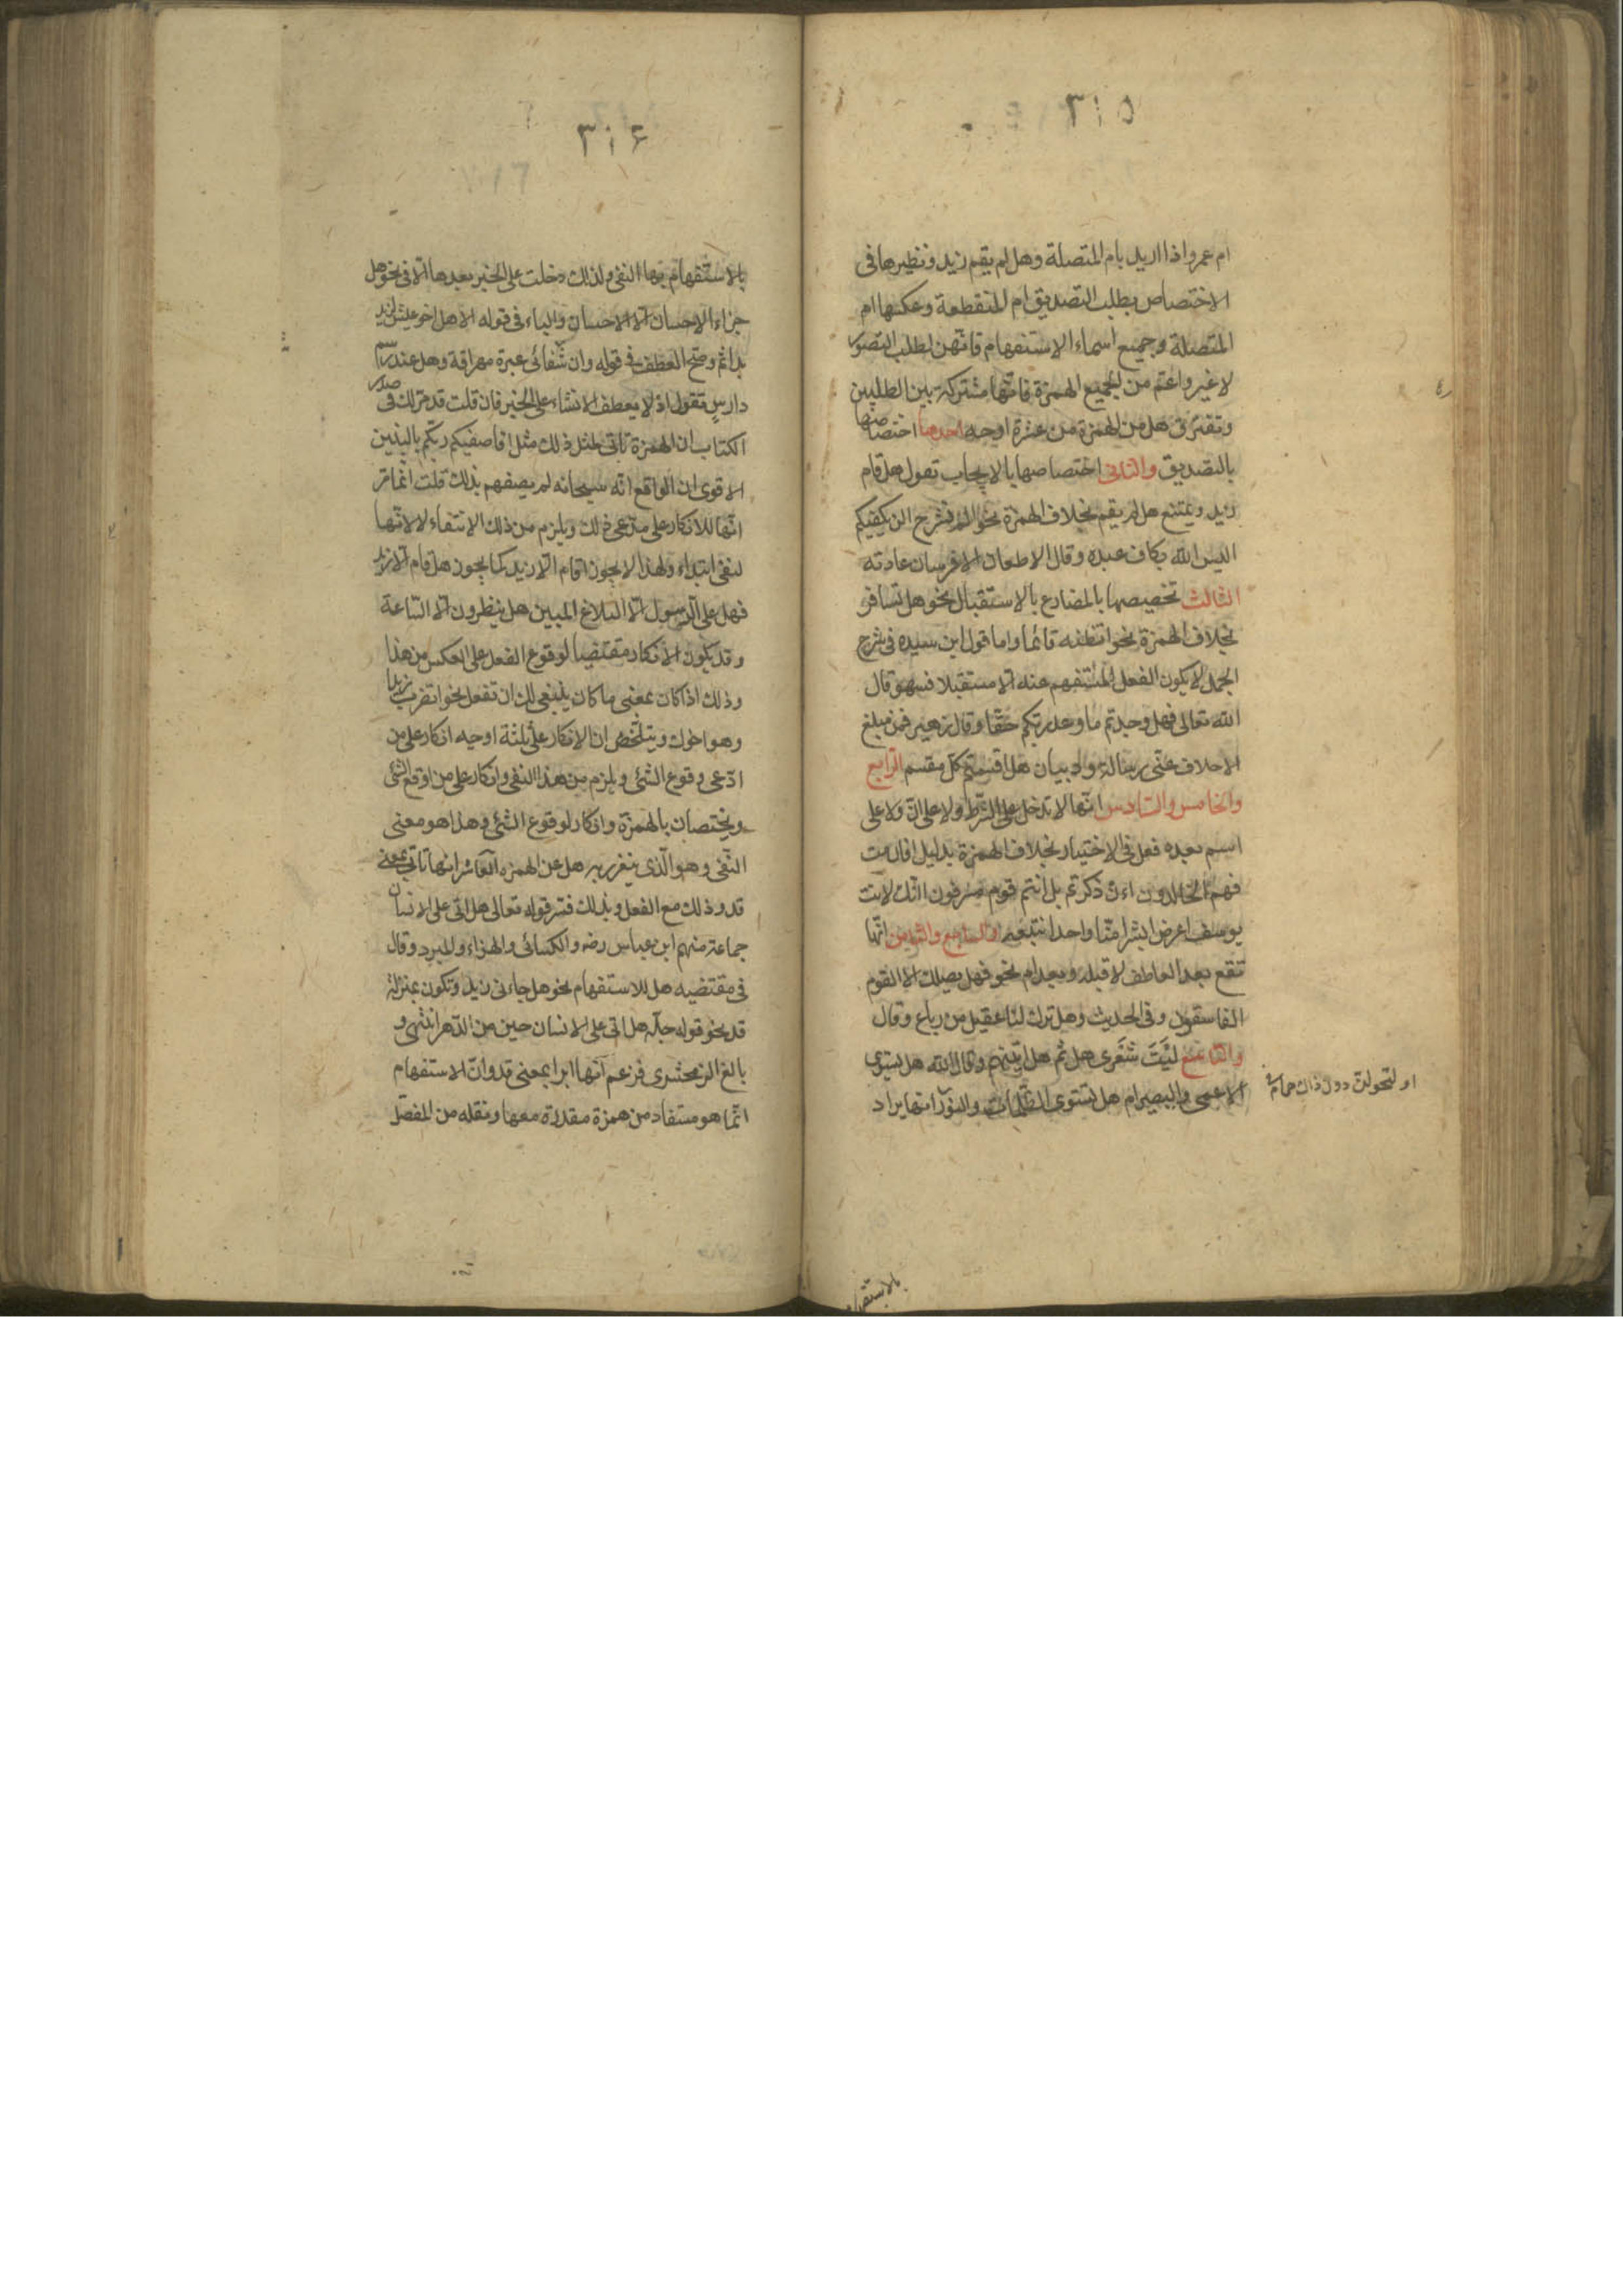 ٣١٥
ام عمرو اذا اريد بام المتصلة وهل لم يقم زيد ونظيرها فى
الاختصاص بطلب التصديق ام المنقطعة وعكسها ام
المتصلة وجميع اسماء الاستفهام فانهن لطلب التصور
لا غير واعم من الجميع الهمزة فانها مشتركة بين الطلبين
وتفترق هل من الهمزة من عشرة اوجه احدها اختصاصها
بالتصديق والثانى اختصاصها بالايجاب تقول هل قام
زيد ويمتنع هل لم يقم بخلاف الهمزة نحو الم نشرح الن يكفيكم
اليس الله بكاف عبده وقال الا طعان الا فرسان عادية
الثالث تخصيصها بالمضارع بالاستقبال نحو هل تسافر
بخلاف الهمزة نحو اتظنه قائما واما قول ابن سيده فى شرح
الجمل لا يكون الفعل المستفهم عنه الا مستقبلا فسهو قال
الله تعالى فهل وجدتم ما وعد ربكم حقا وقال زهير فمن مبلغ
الاحلاف عنى رسالة وذبيان هل اقسمتم كل مقسم الرابع
والخامس والسادس انها لا تدخل على الشرط ولا على ان ولا على
اسم بعده فعل فى الاختيار بخلاف الهمزة بدليل افان مت
فهم الخالدون اءن ذكرتم بل انتم قوم مسرفون اانك لانت
يوسف ابشرا منا واحدا نتبعه والسابع والثامن انها
تقع بعد العاطف لا قبله وبعد ام نحو فهل يهلك الا القوم
الفاسقون وفى الحديث وهل ترك لنا عقيل من رباع وقال
ليت شعرى هل ثم هل اتينهم وقال الله هل يستوى
الاعمى والبصير ام هل تستوى الظلمات والنور والتاسع انها يراد
او لتحولن دون ذاك حمام
بالاستفهام
٣١٦
بالاستفهام بها النفى ولذلك دخلت على الخبر بعدها الا فى نحو هل
جزاء الاحسان الا الاحسان والباء فى قوله الا هل اخو عيش لذيذ
بدائم وصح العطف فى قوله وان شفائى عبرة مهراقة وهل عند رسم
دارس تقول اذ لا يعطف الانشاء على الخبر فان قلت قد مر لك فى صدر
الكتاب ان الهمزة تاتى لمثل ذلك مثل افاصفيكم ربكم بالبنين
الا ترى ان الواقع انه سبحانه لم يصفهم بذلك قلت انما مر
انها للانكار على مدعى ذلك ويلزم من ذلك الانتفاء لا لانها
لنفى ابتداء ولهذا لا يجوز اقام الا زيد كما يجوز هل قام الا زيد
فهل على الرسول الا البلاغ المبين هل ينظرون الا الساعة
وقد يكون الانكار مقتضيا لوقوع الفعل على العكس من هذا
وذلك اذا كان بمعنى ما كان ينبغى لك ان تفعل نحو اتضرب زيدا
وهو اخوك ويتلخص ان الانكار على ثلثة اوجه انكار على من
ادعى وقوع الشئ ويلزم من هذا النفى وانكار على من اوقع الشئ
ويختصان بالهمزة وانكار لوقوع الشئ وهذا هو معنى
النفى وهو الذى ينفرد به هل عن الهمزة العاشر انها تاتى بمعنى
قد وذلك مع الفعل وبذلك فسر قوله تعالى هل اتى على الانسان
جماعة منهم ابن عباس رضه والكسائى والفراء والمبرد وقال
فى مقتضبه هل للاستفهام نحو هل جاءنى زيد وتكون بمنزلة
قد نحو قوله جله هل اتى على الانسان حين من الدهر انتهى و
بالغ الزمخشرى فزعم انها ابدا بمعنى قد وان الاستفهام
انما هو مستفاد من همزة مقدرة معها ونقله من المفصل